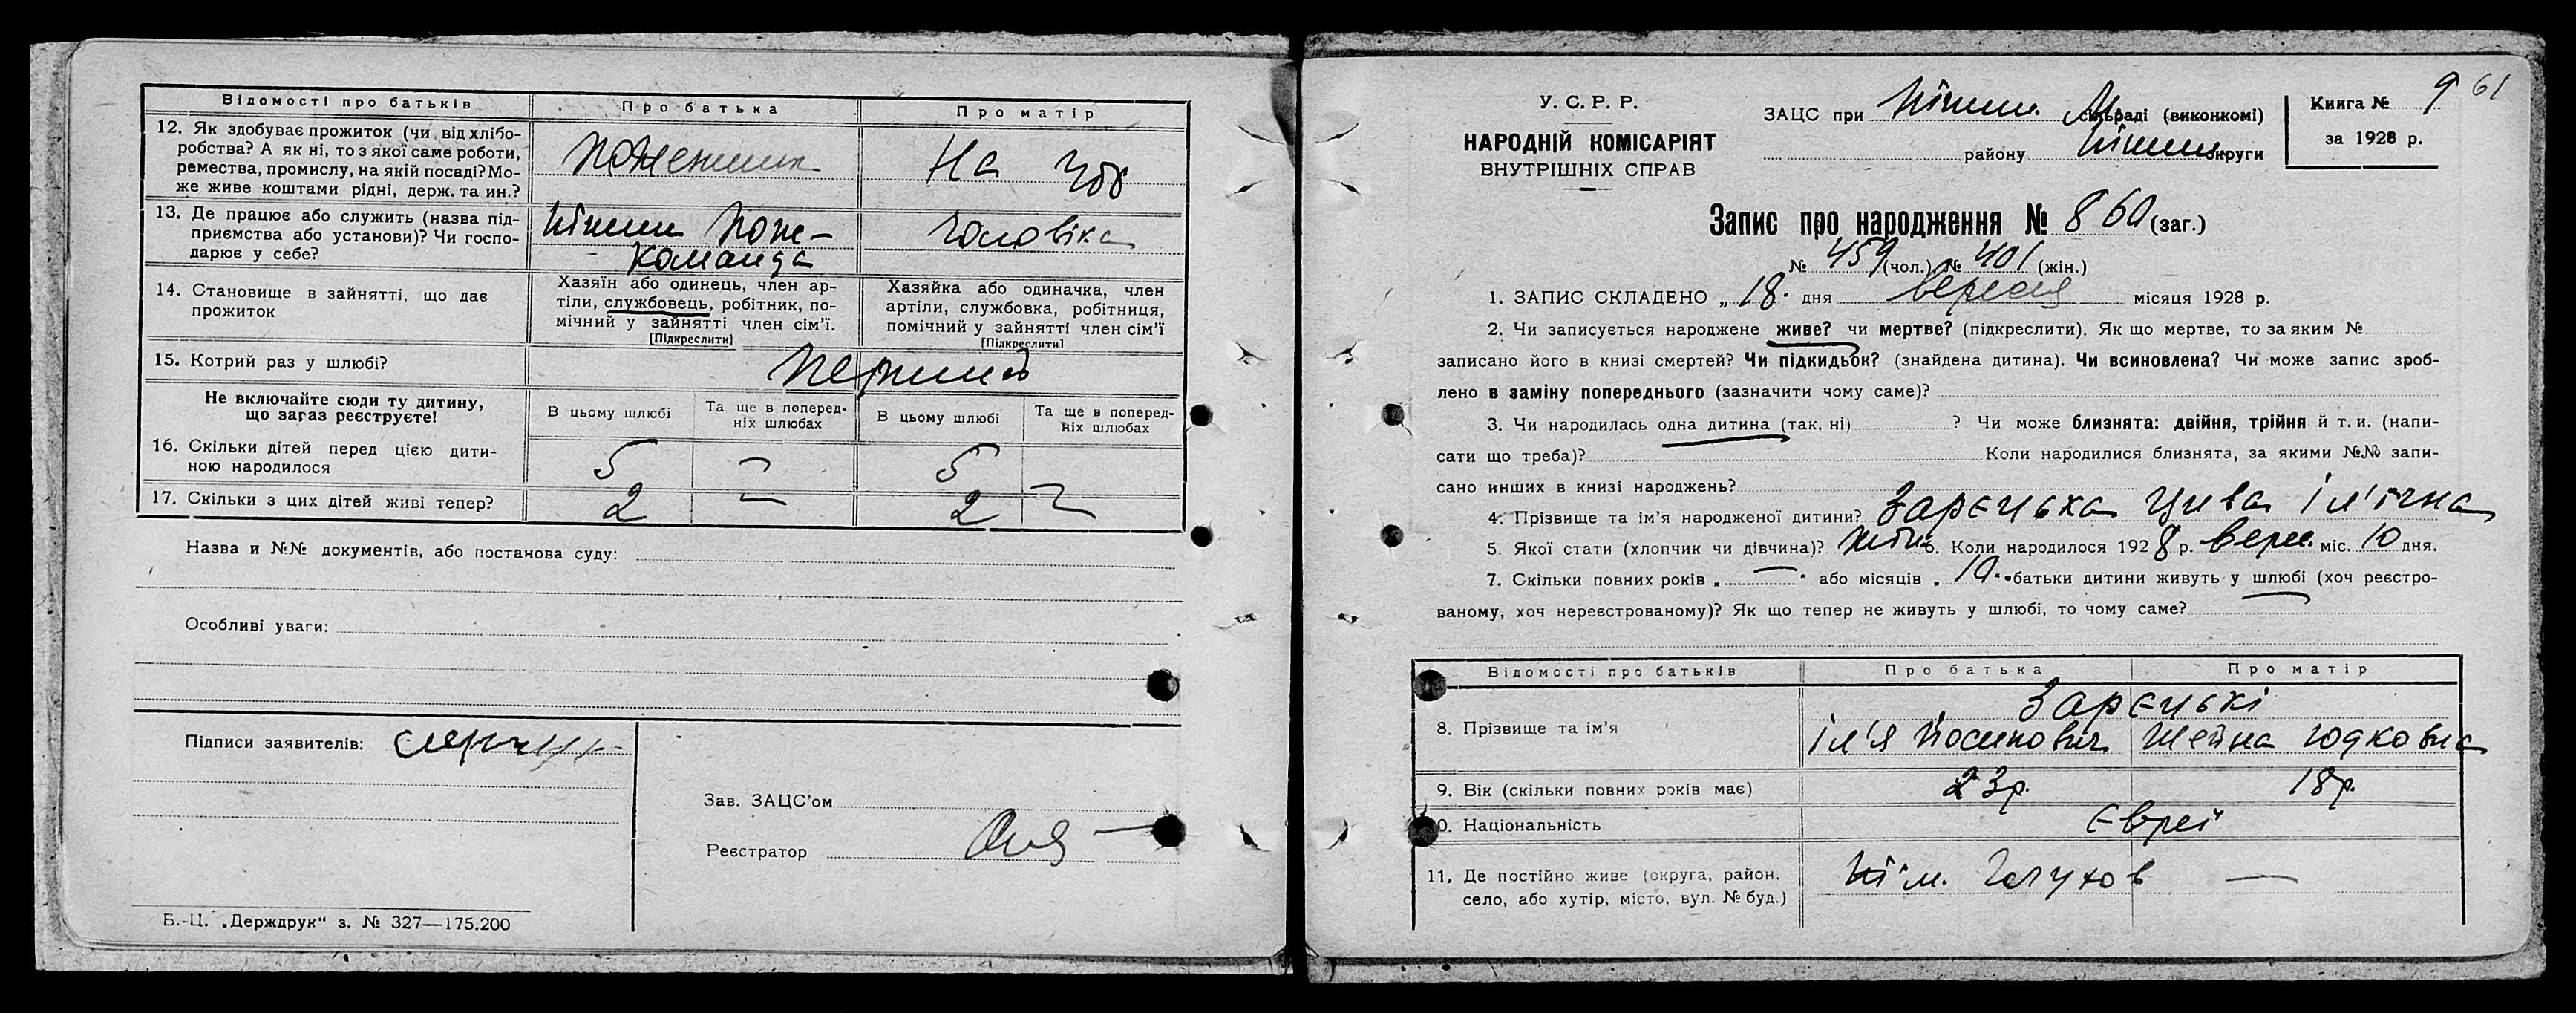 Відомості про батьків
Про батька
Про матір
12. Як здобуває прожиток (чи від хлібо-
робства? А як ні, то з якої саме роботи,
ремества, промислу, на якій посаді? Мо-
же живе коштами рідні, держ. та ин.?
Пожежник
На
13. Де працює або служить (назва під-
приємства або установи)? Чи госпо-
дарює у себе?
Пож-
команда
чоловіка
14. Становище в зайнятті, що дає
прожиток
Хазяїн або одинець, член ар-
тіли, службовець, робітник, по-
мічний у зайнятті член сім'ї.
[Підкреслити]
Хазяйка або одиначка, член
артіли, службовка, робітниця,
помічний у зайнятті член сім'ї
[Підкреслити]
15. Котрий раз у шлюбі?
Не включайте сюди ту дитину,
що загаз реєструєте!
В цьому шлюбі
Та ще в поперед-
ніх шлюбах
В цьому шлюбі
Та ще в поперед-
ніх шлюбах
16. Скільки дітей перед цією дити-
ною народилося
5
—
5
17. Скільки з цих дітей живі тепер?
2
—
2
—
Назва и №№ документів, або постанова суду:
Особливі уваги:
Підписи заявителів:
Зав. ЗАЦС'ом
Реєстратор
Б.-Ц. „Держдрук" з. № 327—175.200
У. С. Р. Р.
НАРОДНІЙ КОМІСАРІЯТ
ВНУТРІШНІХ СПРАВ
ЗАЦС при Ніжин. М. раді (виконкомі)
району Ніжин. округи
Книга № 9
за 1928 р.
61
Запис про народження № 860 (заг.)
№ 459 (чол.) № 401 (жін.)
1. ЗАПИС СКЛАДЕНО „ 18 " дня вересня місяця 1928 р.
2. Чи записується народжене живе? чи мертве? (підкреслити). Як що мертве, то за яким №
записано його в книзі смертей? Чи підкидьок? (знайдена дитина). Чи всиновлена? Чи може запис зроб-
лено в заміну попереднього (зазначити чому саме)?
3. Чи народилась одна дитина (так, ні) ? Чи може близнята: двійня, трійня й т. и. (напи-
сати що треба)? Коли народилися близнята, за якими №№ запи-
сано инших в книзі народжень?
4. Прізвище та ім'я народженої дитини? Зарєцька Цива Іл'їчна
5. Якої стати (хлопчик чи дівчина)? жін. 6. Коли народилося 1928 р. верес. міс. 10 дня.
7. Скільки повних років „ — " або місяців „ 10 " батьки дитини живуть у шлюбі (хоч реєстро-
ваному, хоч нереєстрованому)? Як що тепер не живуть у шлюбі, то чому саме?
Відомості про батьків
Про батька
Про матір
8. Прізвище та ім'я
Зарєцькі
Іл'я Йосипович
Шейна Юдковна
9. Вік (скільки повних років має)
23р.
18р.
10. Національність
Євреї
11. Де постійно живе (округа, район,
село, або хутір, місто, вул. № буд.)
—